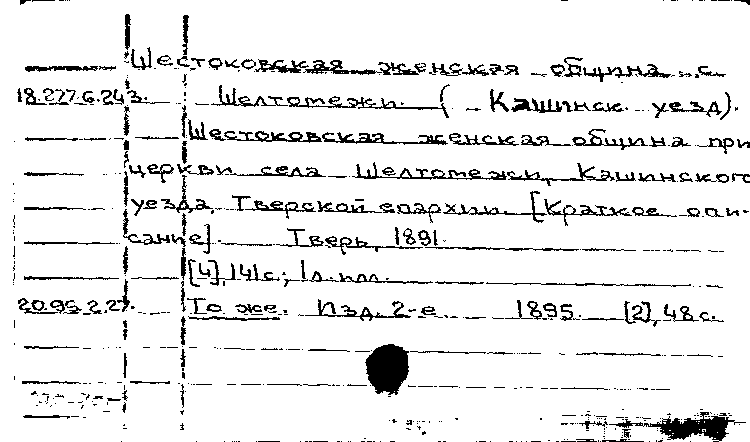 Шестоковская женская община с.
18.277.6.243. Шелтомежи. ( Кашинск. уезд).
Шестоковская женская община при
церкви села Шелтомежи, Кашинского
уезда, Тверской епархии. [Краткое опи-
сание]. Тверь, 1891.
[4], 141 с.; 1 л. илл.
20.95.2.27. То же. Изд. 2-е 1895. [2], 48 с.